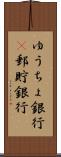 ゆうちょ銀行
郵貯銀行